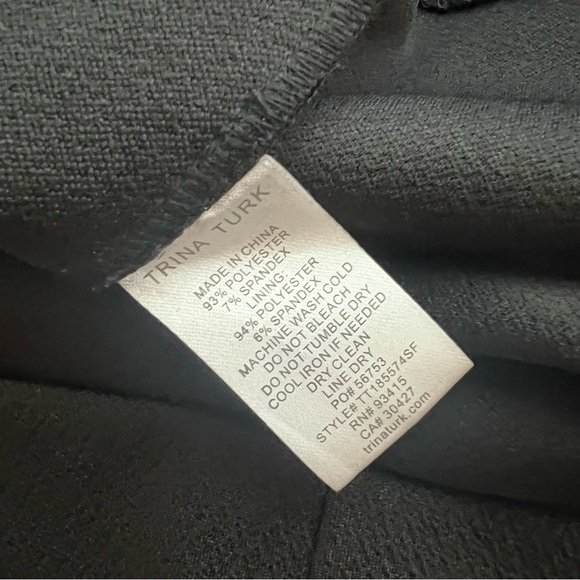 TRINA TURK
MADE IN CHINA
93% POLYESTER
7% SPANDEX
LINING:
94% POLYESTER
6% SPANDEX
MACHINE WASH COLD
DO NOT BLEACH
DO NOT TUMBLE DRY
COOL IRON IF NEEDED
DRY CLEAN
LINE DRY
PO# 56753
STYLE# TT185574SF
RN# 93415
CA# 30427
trinaturk.com